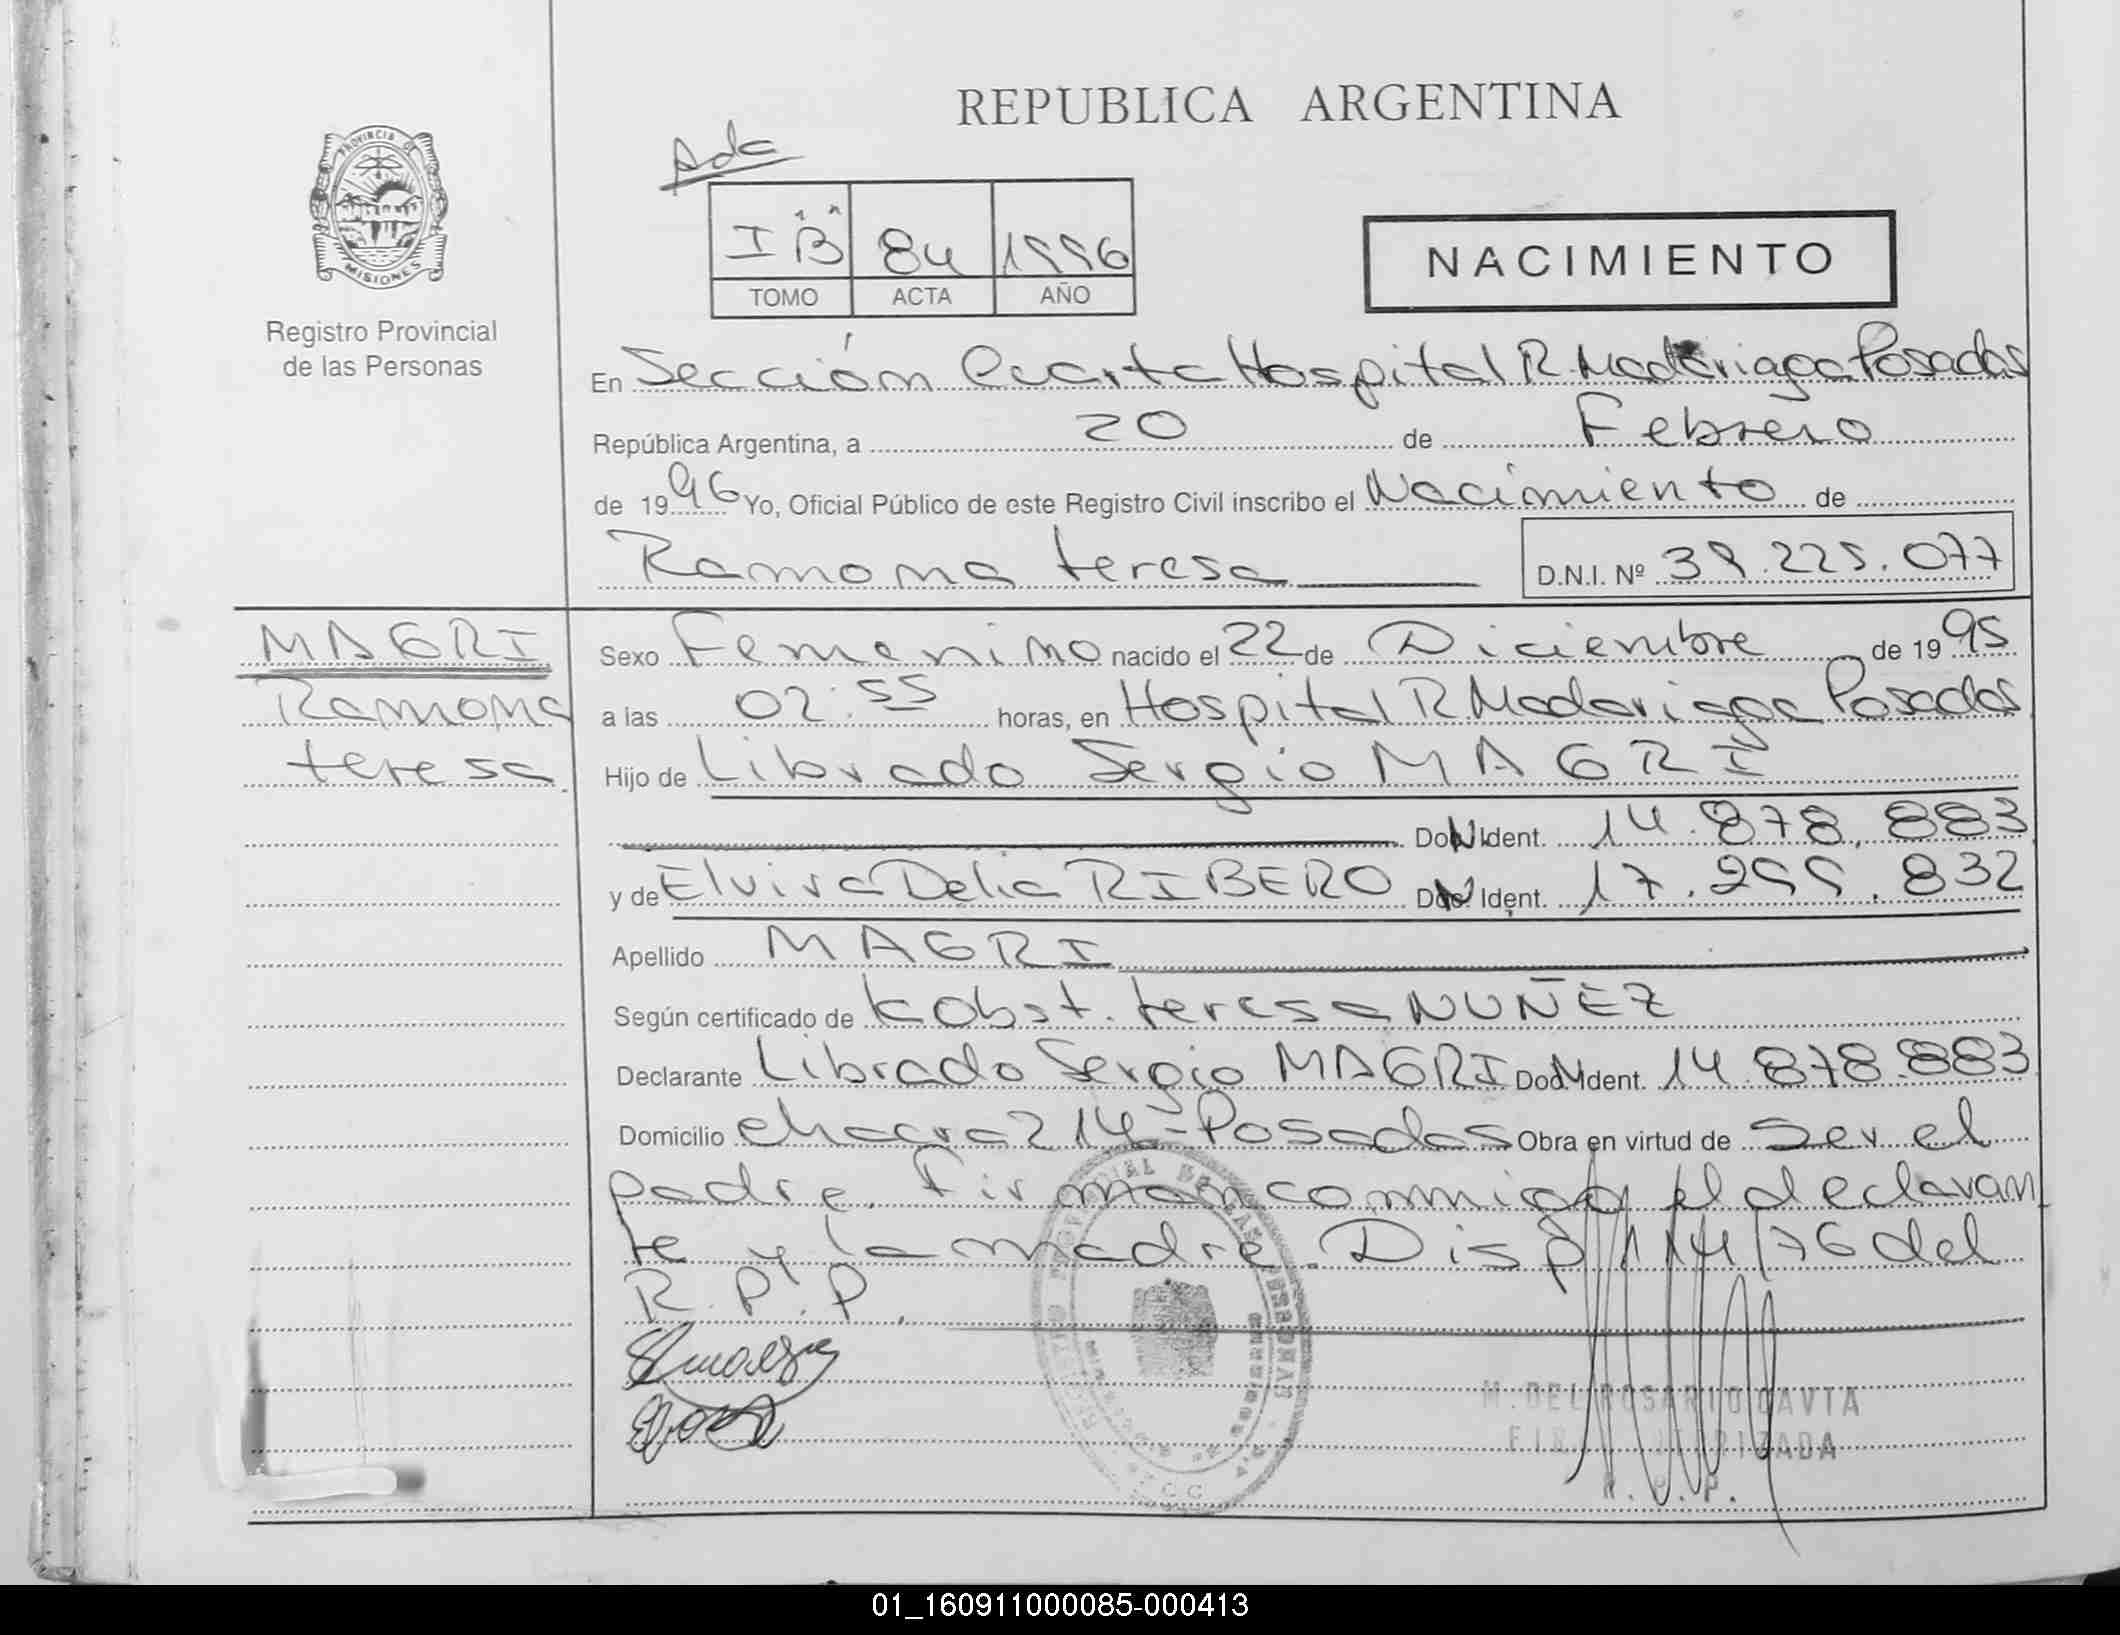 REPUBLICA ARGENTINA
PROVINCIA DE
MISIONES
Registro Provincial
de las Personas
Ada
I "B" 84 1996
TOMO ACTA AÑO
NACIMIENTO
En Sección Cuarta Hospital R Madariaga Posadas
República Argentina, a 20 de Febrero
de 1996 Yo, Oficial Público de este Registro Civil inscribo el Nacimiento de
Ramona teresa D.N.I. Nº 39.225.077
MAGRI
Ramona
teresa
Sexo Femenino nacido el 22 de Diciembre de 1995
a las 02:55 horas, en Hospital R. Madariaga Posadas
Hijo de Librado Sergio MAGRI
Doc. Ident. 14.878.883
y de Elvira Delia RIBERO Doc. Ident. 17.299.832
Apellido MAGRI
Según certificado de kobst. teresa NUÑEZ
Declarante Librado Sergio MAGRI Doc. Ident. 14.878.883
Domicilio chacra 214 - Posadas Obra en virtud de ser el
padre. Firman conmigo el declaran
te y la madre. Disp 114/76 del
R.P.P.
M. DEL ROSARIO DAVTA
FIRMA AUTORIZADA
R. P. P.
01_160911000085-000413